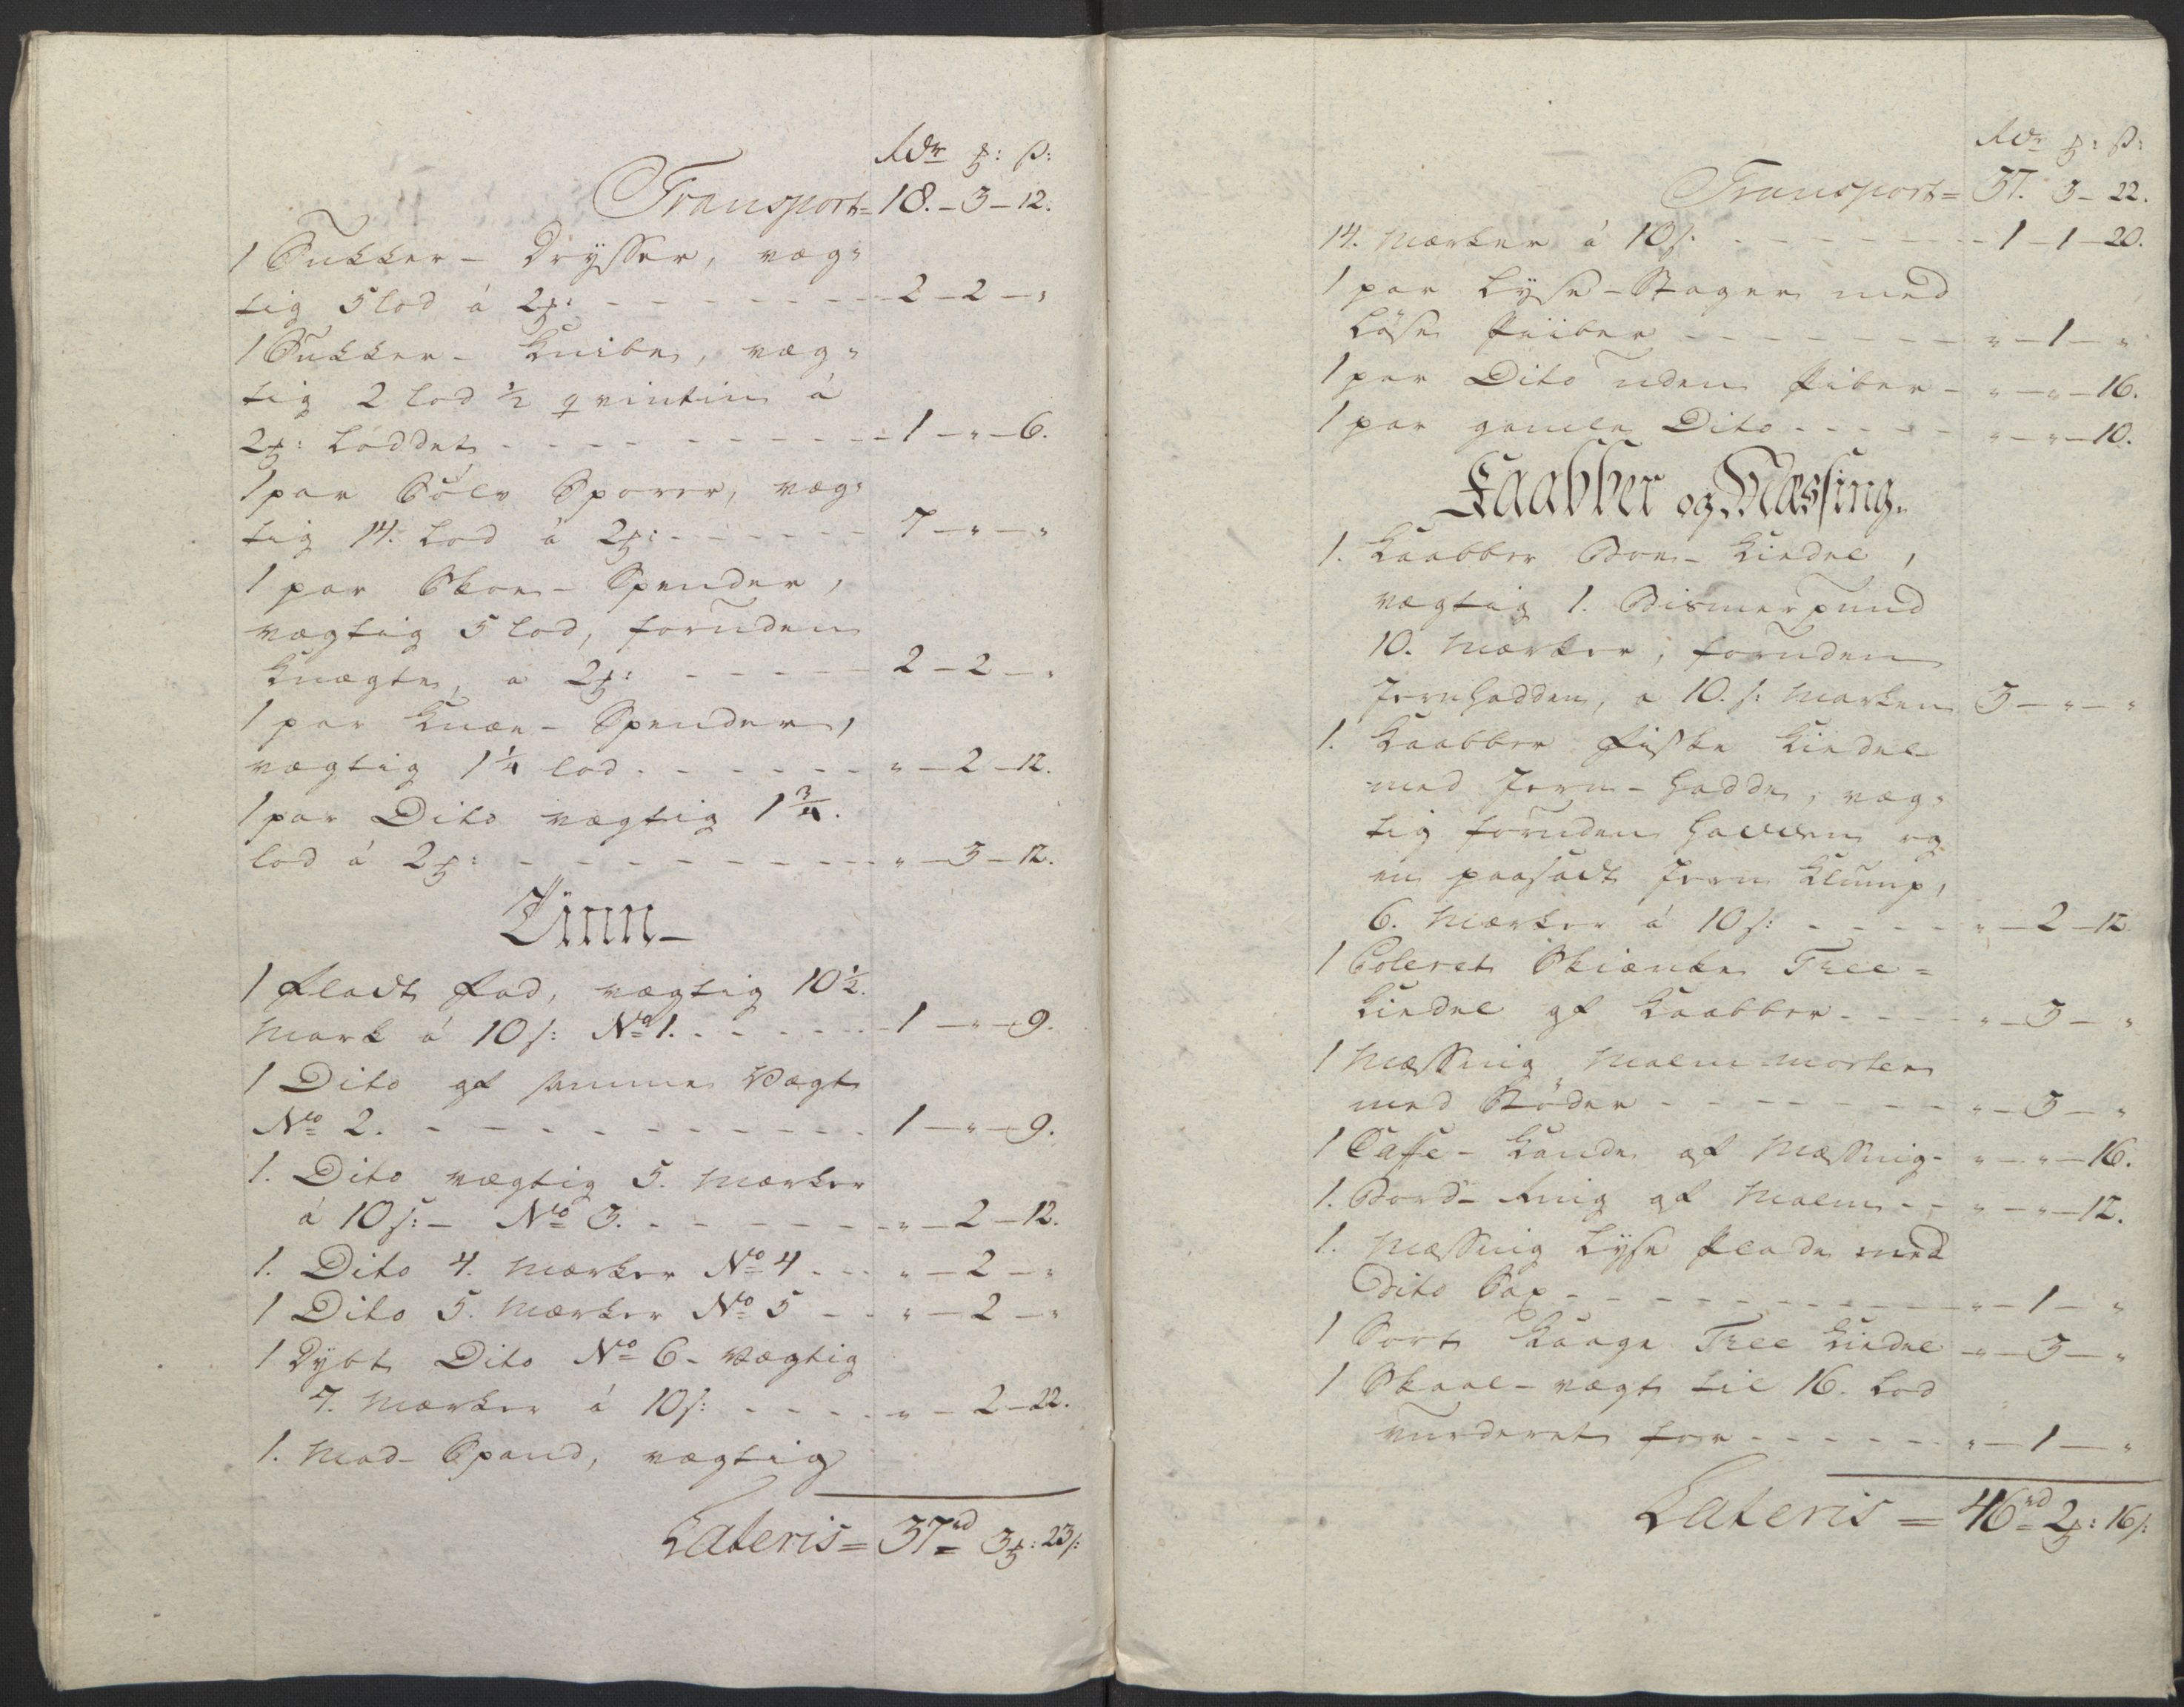 Rdr ꝟ: ß:
Transport= 18.-3-12.
1 Sukker- Drysser, væg=
tig 5 lod á 2 ꝟ: - - - - - - - 2-2-"
1 Sukker- Knibe, væg=
tig 2 lod ½ qvintin á
2 ꝟ: Loddet - - - - - - - - - - 1-"-6.
1 par Sölv Sporer, væg=
tig 14. Lod á 2 ꝟ: - - - - - 7-"-"
1 par Skoe- Spender,
vægtig 5 lod, foruden
Knægte, a 2 ꝟ: - - - - - 2-2-"
1 par Knæe- Spender,
vægtig 1¼ lod - - - - - - "-2-12.
1 par Dito vægtig 1¾.
lod á 2 ꝟ: - - - - - - - - - "-3-12.
Tinn-
1 fladt Fad, vægtig 10½.
Mark á 10 s: No 1. - - - - - 1-"-9.
1 Dito af samme Vægt
No 2. - - - - - - - - - - - 1-"-9.
1. Dito vægtig 5. Mærker
á 10 s:- No 3. - - - - - - "-2-12.
1. Dito 4. Mærker No 4 - - - "-2-"
1 Dito 5. Mærker No 5 - - "-2-"
1 Dybt Dito No 6- Vægtig
7. Mærker á 10 s: - - - - "-2-22.
1. Mad- Spand, vægtig
Lateris= 37rd 3 ꝟ: 23 s:
Rdr ꝟ: ß:
Transport= 37. 3-22.
14. Mærker á 10 s. - - - - - - - 1-1-20.
1 par Lyse-Stager med
Löse Piiber - - - - - - - - "-1-"
1 par Dito uden Piber - "-"-16.
1 par gamle Dito - - - - - "-"-10.
Kaabber og Mæssing.
1. Kaabber Boe- Kiedel,
vægtig 1. Bismerpund
10. Mærker, foruden
Jernhadden, a 10. s: Marken 3-"-"
1. Kaabber Fiske Kiedel
med Jern- Hadde, væg=
tig foruden Hadden og
en paasadt Jern Klump,
6. Mærker á 10 s: - - - - "-2-12
1 Coleret Skiænke Thee=
Kiedel af Kaabber - - - - "-3-"
1 Mæssing Malm morter
med Stöder - - - - - - - - "-3-"
1 Caffe- Kande af Mæssing - "-"-16.
1. Bord- Ring af Malm - - "-"-12.
1. Mæssing Lyse Plade med
Dito Sax - - - - - - - - - - - "-1-"
1 Sort Kaage Thee Kiedel - "-3-"
1 Skaal- vægt til 16. Lod
vurderet for - - - - - - "-1-"
Lateris = 46rd 2 ꝟ: 16 s: